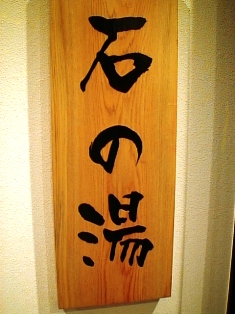 石の湯